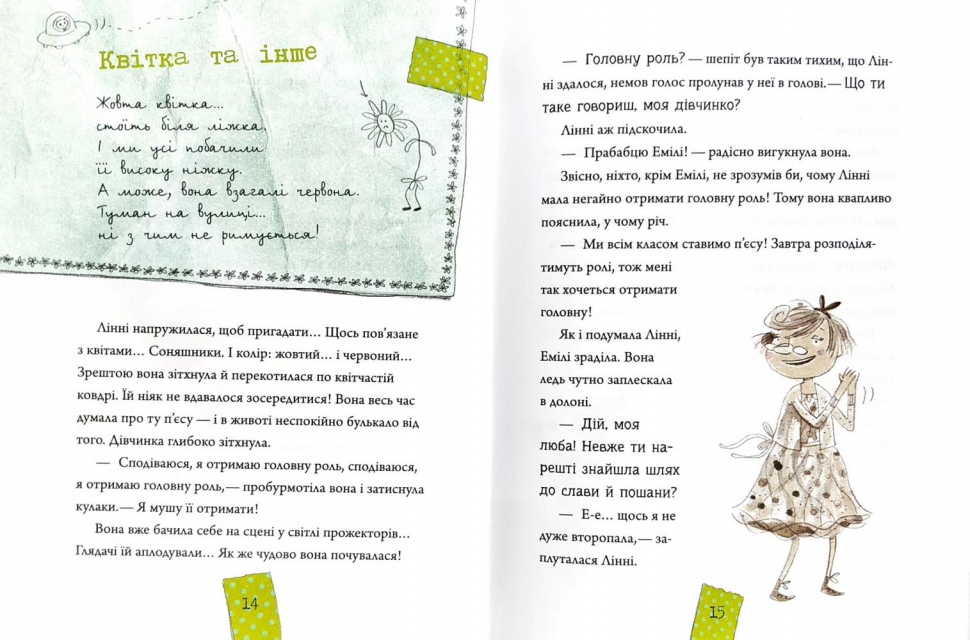 Квітка та інше
Жовта квітка...
стоїть біля ліжка.
І ми усі побачили
її високу ніжку.
А може, вона взагалі червона.
Туман на вулиці...
ні з чим не римується!
Лінні напружилася, щоб пригадати... Щось пов’язане
з квітами... Соняшники. І колір: жовтий... і червоний...
Зрештою вона зітхнула й перекотилася по квітчастій
ковдрі. Їй ніяк не вдавалося зосередитися! Вона весь час
думала про ту п’єсу — і в животі неспокійно булькало від
того. Дівчинка глибоко зітхнула.
— Сподіваюся, я отримаю головну роль, сподіваюся,
я отримаю головну роль,— пробурмотіла вона і затиснула
кулаки.— Я мушу її отримати!
Вона вже бачила себе на сцені у світлі прожекторів...
Глядачі їй аплодували... Як же чудово вона почувалася!
14
— Головну роль? — шепіт був таким тихим, що Лін-
ні здалося, немов голос пролунав у неї в голові.— Що ти
таке говориш, моя дівчинко?
Лінні аж підскочила.
— Прабабцю Емілі! — радісно вигукнула вона.
Звісно, ніхто, крім Емілі, не зрозумів би, чому Лінні
мала негайно отримати головну роль! Тому вона квапливо
пояснила, у чому річ.
— Ми всім класом ставимо п’єсу! Завтра розподіля-
тимуть ролі, тож мені
так хочеться отримати
головну!
Як і подумала Лінні,
Емілі зраділа. Вона
ледь чутно заплескала
в долоні.
— Дій, моя
люба! Невже ти на-
решті знайшла шлях
до слави й пошани?
— Е-е... щось я не
дуже второпала,— за-
плуталася Лінні.
15